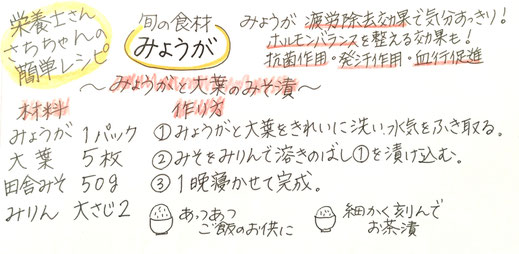 栄養士さん
さちちゃんの
簡単レシピ
旬の食材
みょうが
みょうが 疲労除去効果で気分すっきり!
ホルモンバランスを整える効果も!
抗菌作用・発汗作用・血行促進
〜みょうがと大葉のみそ漬〜
材料
みょうが 1パック
大葉 5枚
田舎みそ 50g
みりん 大さじ2
作り方
①みょうがと大葉をきれいに洗い、水気をふき取る。
②みそをみりんで溶きのばし①を漬け込む。
③1晩寝かせて完成。
あっつあつ
ご飯のお供に
細かく刻んで
お茶漬